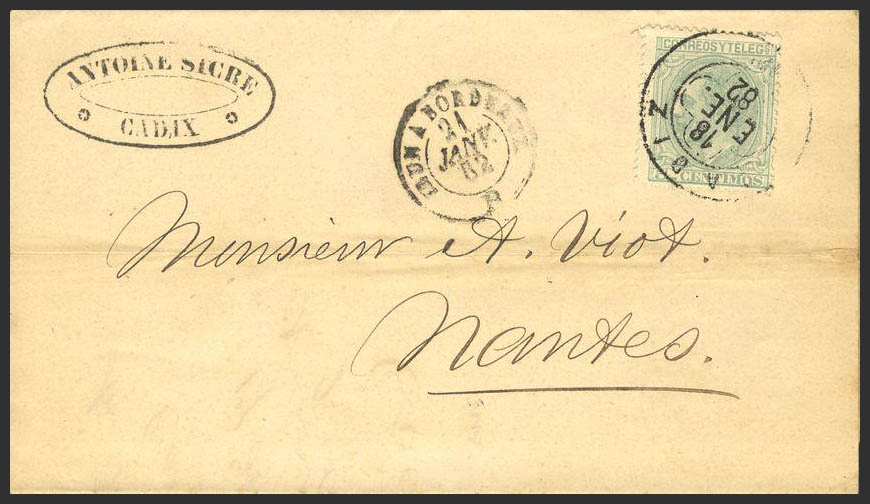 ANTOINE SICRE
CADIX
IRUN A BORDEAUX
21
JANV.
82
CORREOS Y TELEG
CENTIMOS
CADIZ
18
ENE.
82
Monsieur A. Viot.
Nantes.